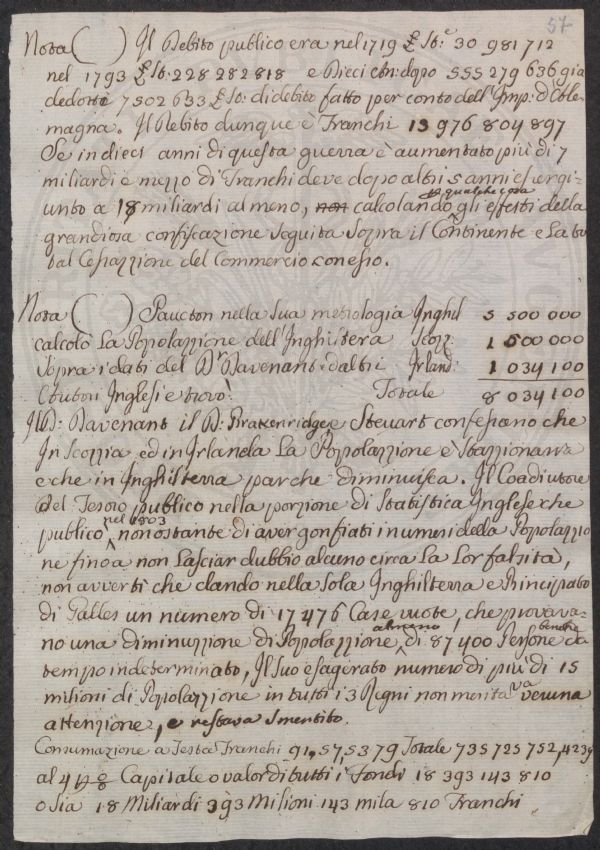 57
Nota ( ) Il Debito publico era nel 1719 £ St.e 30 981 712
nel 1793 £ St: 228 282 818 e Dieci Anni dopo 555 279 636 già
dedotte 7 502 633 £ St: di debito fatto per conto dell'Imp: d'Ale-
magna. Il Debito dunque è Franchi 13 976 804 897
Se in dieci anni di questa guerra è aumentato più di 7
miliardi e mezzo di Franchi deve dopo altri 5 anni esser gi-
unto a 18 miliardi al meno, non calcolando qualche cosa gli effetti della
grandiosa confiscazione seguita sopra il Continente e la to-
tal Cessazzione del Commercio conesso.
Nota ( ) Paucton nella sua metrologia Inghil 5 500 000
calcolò La Popolazzione dell'Inghilterra Scoz: 1 500 000
Sopra i dati del Dr Davenant e d'altri Irland: 1 034 100
Autori Inglesi e trovò: Totale 8 034 100
Il D: Davenant il D: Brakenridge e Steuart confessano che
In Scozzia ed in Irlanda La Popolazzione è Stazzionaria
e che in Inghilterra par che diminuisca. Il Coadiutore
Del Tesoro publico nella porzione di Statistica Inglese che
publicò nel 1803 nonostante di aver gonfiati i numeri della Popolazzio
ne fino a non lasciar dubbio alcuno circa La Lor falsità,
non avvertì che dando nella sola Inghilterra e Principato
di Galles un numero di 17 476 Case vuote, che provava-
no una diminuzzione di Popolazzione almeno di 87 400 Persone benchè da
tempo indeterminato, Il suo esagerato numero di più di 15
milioni di Popolazzione in tutti i 3 Regni non meritava veruna
attenzione, e restava smentito.
Consumazione a Testa Franchi 91, 57, 5379 Totale 735 725 752, 4239
al 4 p 0/0 Capitale o valor di tutti i Fondi 18 393 143 810
o sia 18 Miliardi 393 Milioni 143 mila 810 Franchi